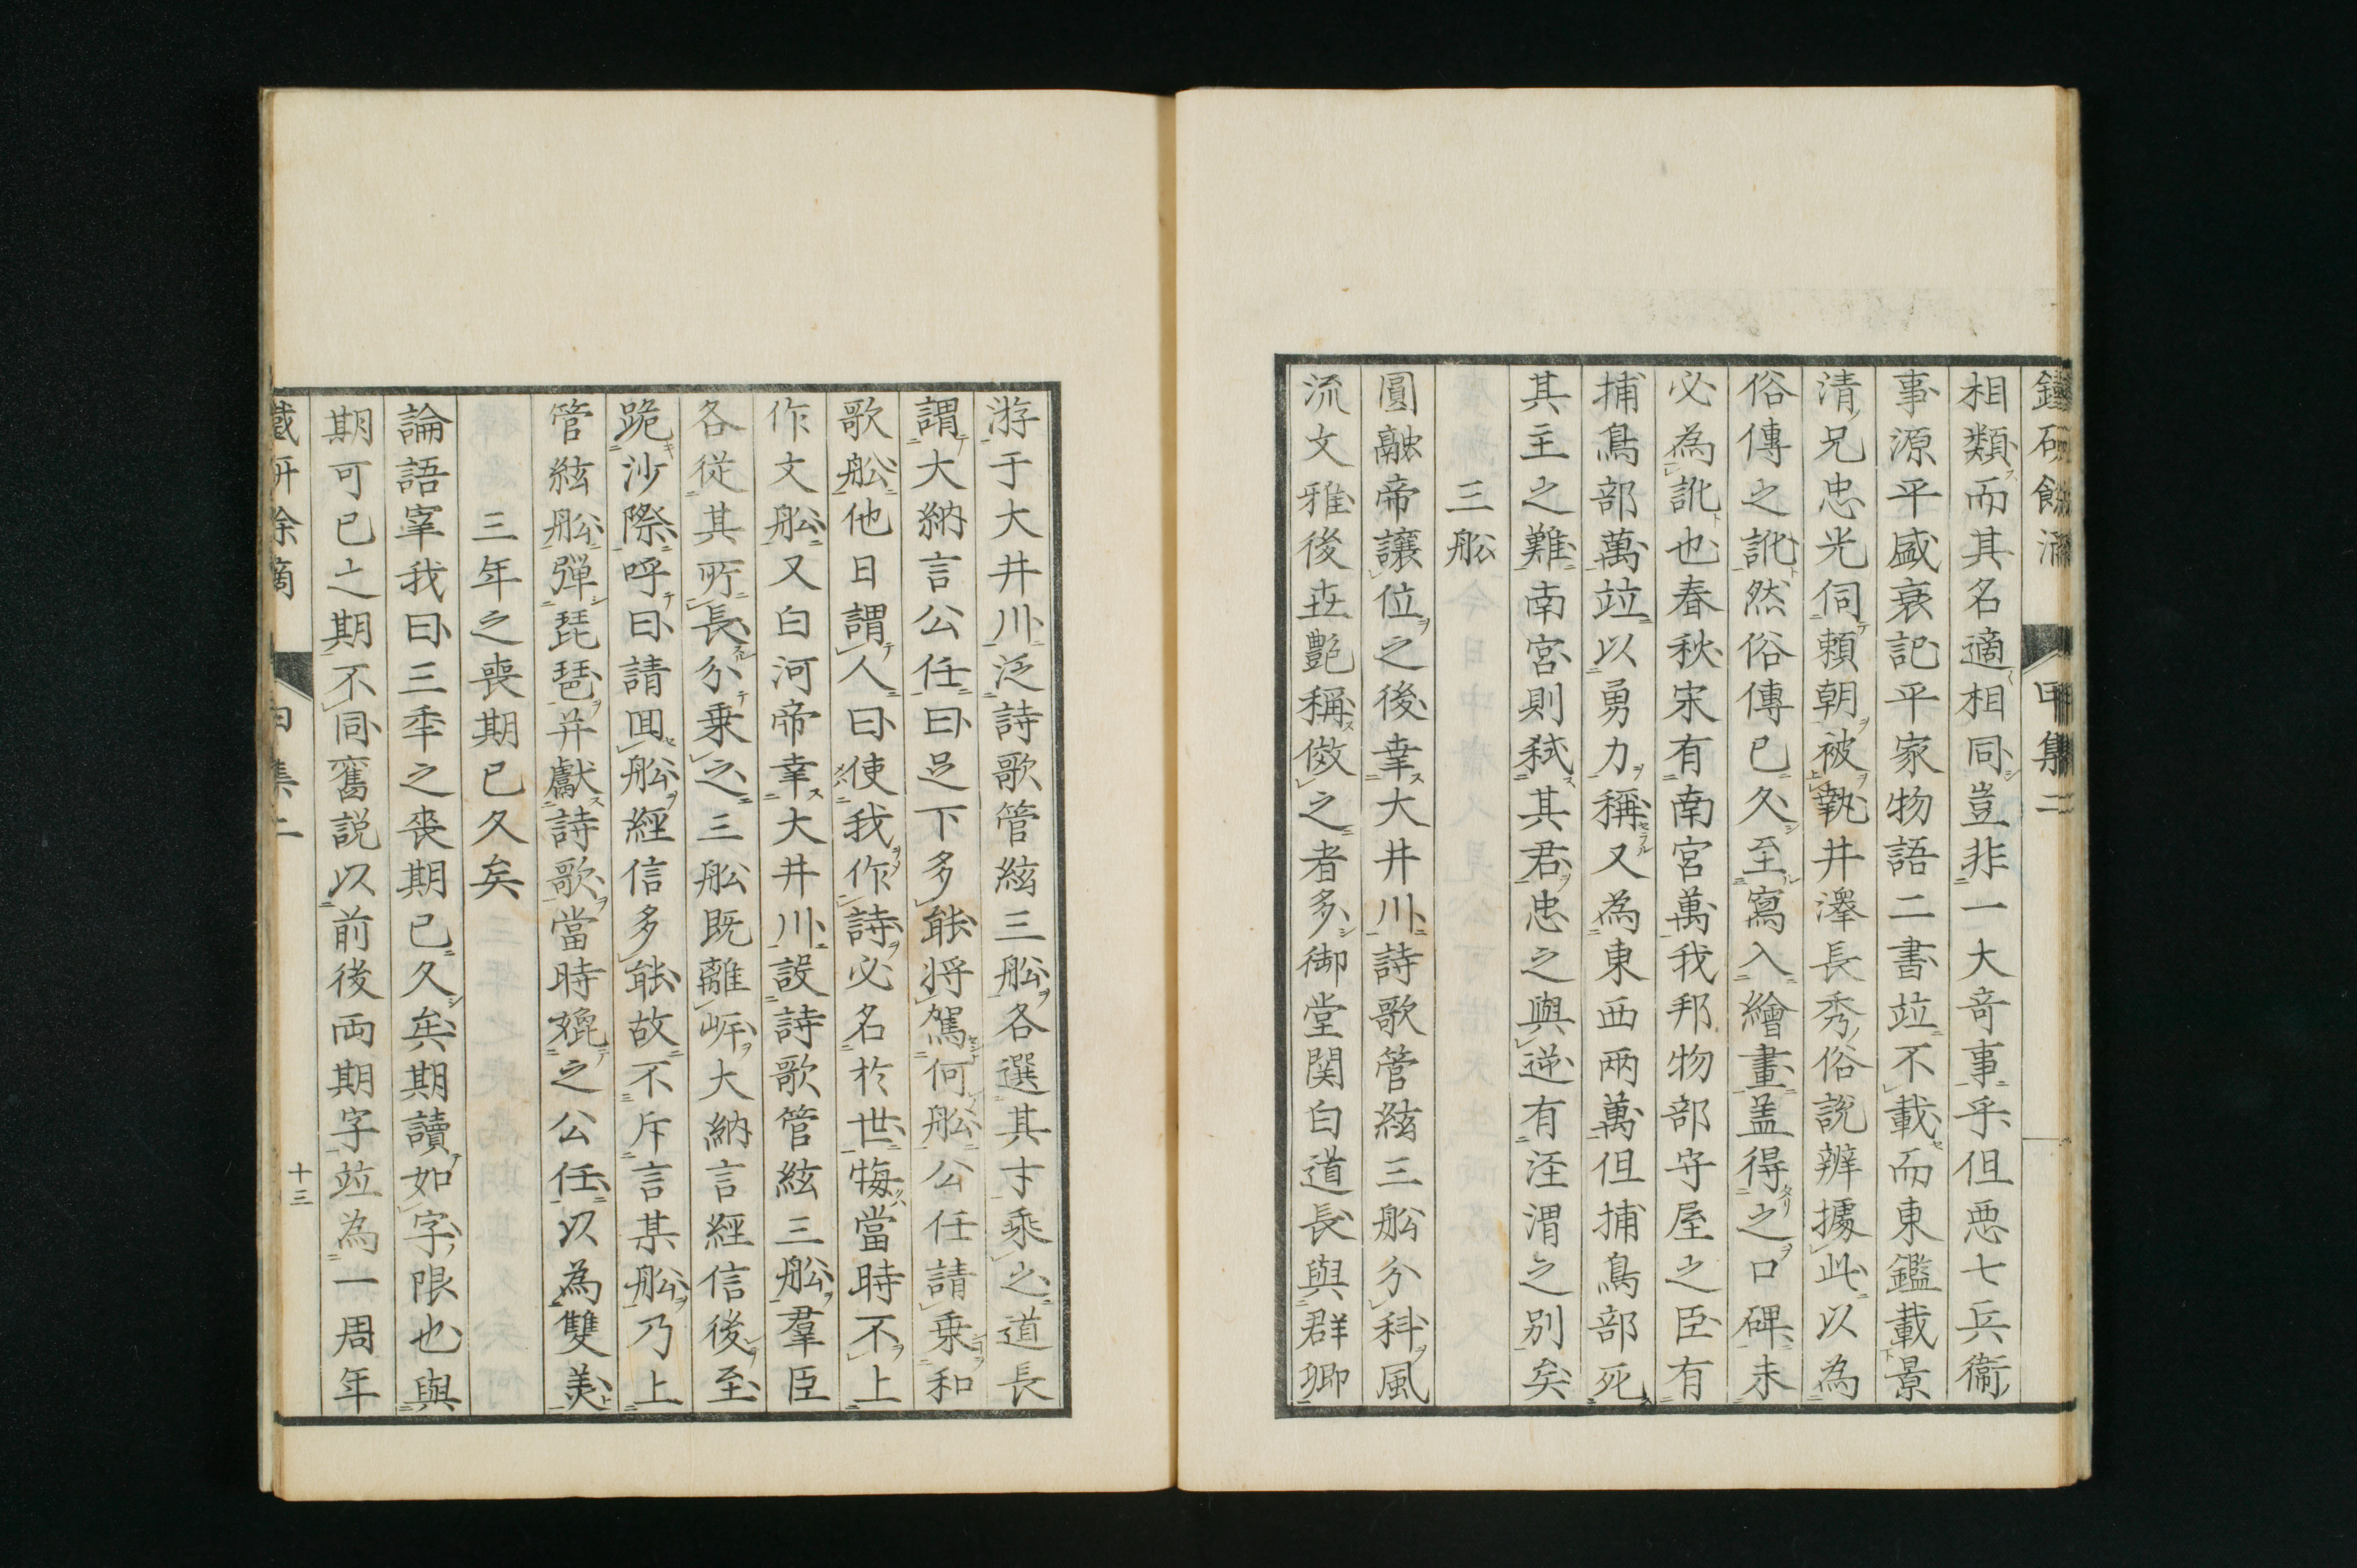 鐵研餘滴 甲集二
相類而其名適相同豈非一大竒事乎但悪七兵衞
事源平盛衰記平家物語二書竝不載而東鑑載景
清兄忠光伺頼朝被執井澤長秀俗說辨據此以為
俗傳之訛然俗傳已久至寫入繪畫盖得之口碑未
必為訛也春秋宋有南宮萬我邦物部守屋之臣有
捕鳥部萬竝以勇力稱又為東西兩萬但捕鳥部死
其主之難南宮則弒其君忠之與逆有涇渭之別矣
三舩
圓融帝讓位之後幸大井川詩歌管絃三舩分科風
流文雅後世艷稱傚之者多御堂関白道長與群卿
游于大井川泛詩歌管絃三舩各選其才乘之道長
謂大納言公任曰足下多能將駕何舩公任請乗和
歌舩他日謂人曰使我作詩必名於世悔當時不上
作文舩又白河帝幸大井川設詩歌管絃三舩羣臣
各從其所長分乗之三舩既離岸大納言經信後至
跪沙際呼曰請回舩經信多能故不斥言某舩乃上
管絃舩彈琵琶并獻詩歌當時媲之公任以為雙美
三年之喪期已久矣
論語宰我曰三年之喪期已久矣期讀如字限也與
期可已之期不同舊説以前後両期字竝為一周年
十三